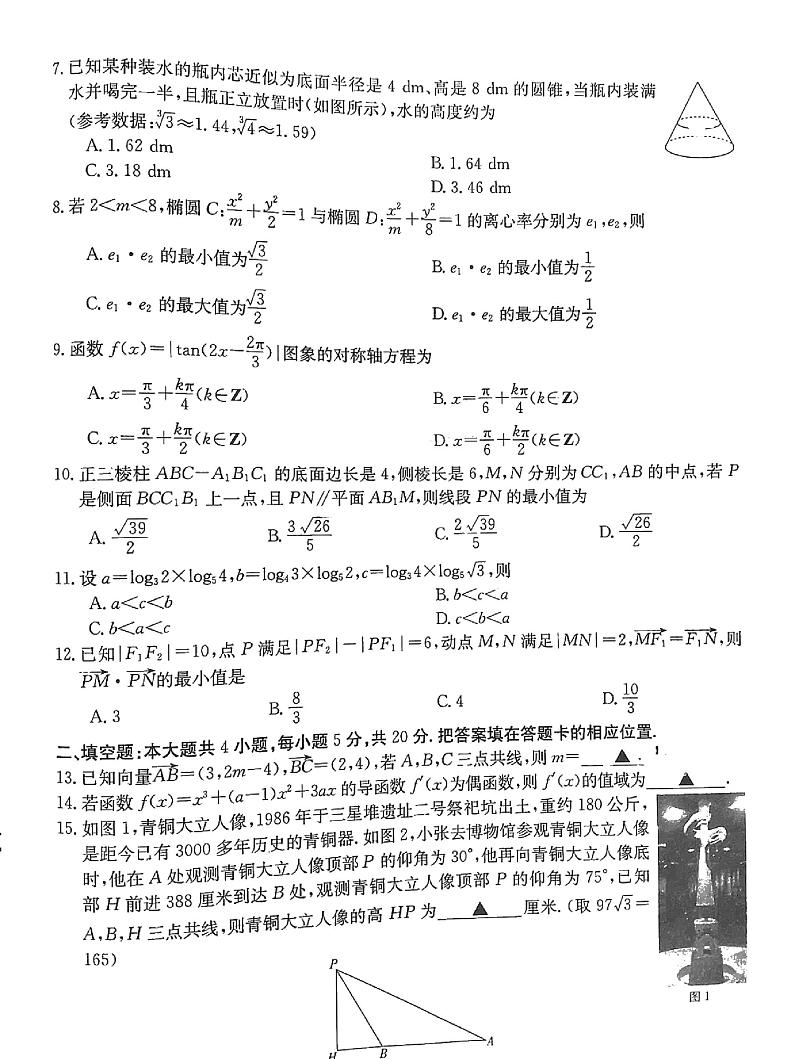 7. 已知某种装水的瓶内芯近似为底面半径是 4 dm、高是 8 dm 的圆锥,当瓶内装满
水并喝完一半,且瓶正立放置时(如图所示),水的高度约为
(参考数据:∛3≈1.44,∛4≈1.59)
A. 1.62 dm
B. 1.64 dm
C. 3.18 dm
D. 3.46 dm
8. 若 2<m<8,椭圆 C:x²/m+y²/2=1 与椭圆 D:x²/m+y²/8=1 的离心率分别为 e₁,e₂,则
A. e₁·e₂ 的最小值为√3/2
B. e₁·e₂ 的最小值为1/2
C. e₁·e₂ 的最大值为√3/2
D. e₁·e₂ 的最大值为1/2
9. 函数 f(x)=|tan(2x-2π/3)|图象的对称轴方程为
A. x=π/3+kπ/4(k∈Z)
B. x=π/6+kπ/4(k∈Z)
C. x=π/3+kπ/2(k∈Z)
D. x=π/6+kπ/2(k∈Z)
10. 正三棱柱 ABC-A₁B₁C₁ 的底面边长是 4,侧棱长是 6,M,N 分别为CC₁,AB 的中点,若 P
是侧面 BCC₁B₁ 上一点,且 PN∥平面 AB₁M,则线段 PN 的最小值为
A. √39/2
B. 3√26/5
C. 2√39/5
D. √26/2
11. 设 a=log₃2×log₅4,b=log₄3×log₅2,c=log₃4×log₅√3,则
A. a<c<b
B. b<c<a
C. b<a<c
D. c<b<a
12. 已知|F₁F₂|=10,点 P 满足|PF₂|-|PF₁|=6,动点 M,N 满足|MN|=2,→MF₁=→F₁N,则
→PM·→PN的最小值是
A. 3
B. 8/3
C. 4
D. 10/3
二、填空题:本大题共 4 小题,每小题 5 分,共 20 分.把答案填在答题卡的相应位置.
13. 已知向量→AB=(3,2m-4),→BC=(2,4),若 A,B,C 三点共线,则 m=__▲.
14. 若函数 f(x)=x³+(a-1)x²+3ax 的导函数 f′(x)为偶函数,则 f′(x)的值域为__▲__.
15. 如图 1,青铜大立人像,1986 年于三星堆遗址二号祭祀坑出土,重约 180 公斤,
是距今已有 3000 多年历史的青铜器.如图 2,小张去博物馆参观青铜大立人像
时,他在 A 处观测青铜大立人像顶部 P 的仰角为 30°,他再向青铜大立人像底
部 H 前进 388 厘米到达 B 处,观测青铜大立人像顶部 P 的仰角为 75°,已知
A,B,H 三点共线,则青铜大立人像的高 HP 为__▲__厘米.(取 97√3=
165)
图 1
P
H
B
A